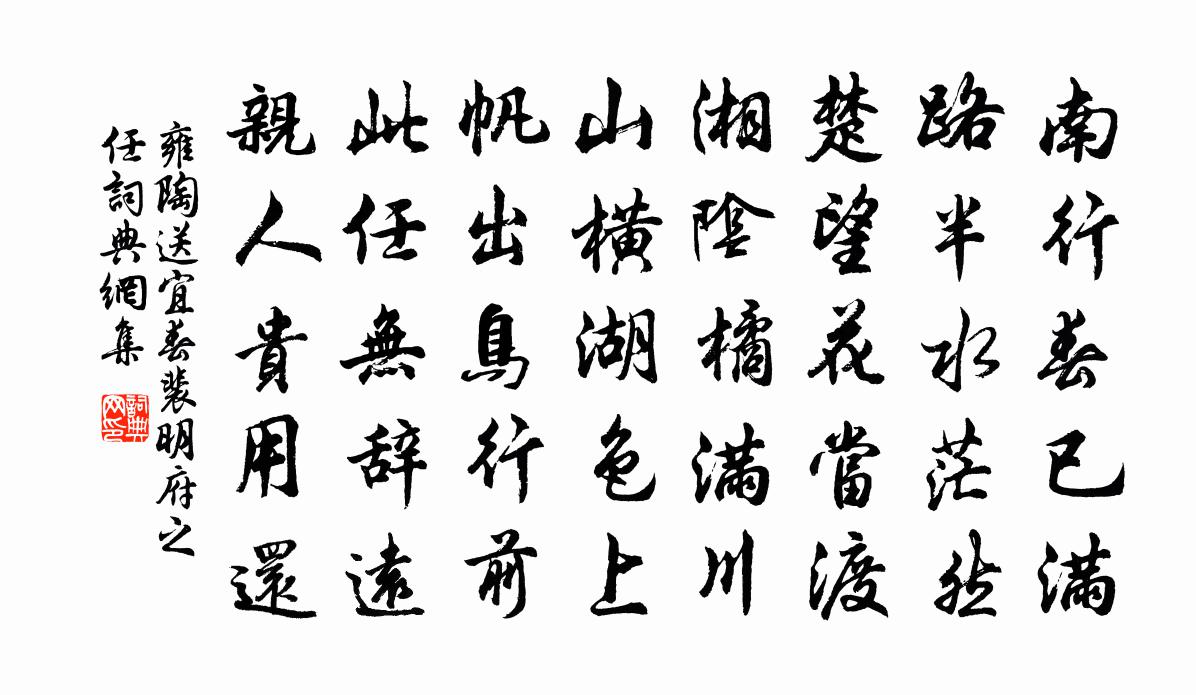 南行春已滿
路半水茫然
楚望花當渡
湘陰橘滿川
山橫湖色上
帆出鳥行前
此任無辞遠
親人貴用還
雍陶送宜春裴明府之
任詞典網集
詞典
网印